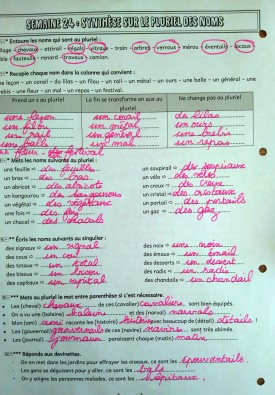 SEMAINE 24 : SYNTHÈSE SUR LE PLURIEL DES NOMS
* Entoure les noms qui sont au pluriel :
village - chevaux - attirail - régals - vitraux - train - arbres - verrous - mérou - éventails - locaux
fauteuils - renard - travaux - camion.
* Recopie chaque nom dans la colonne qui convient :
une leçon - un corail - du lilas - un filou - un rail - un métal - un ours - une balle - un général - une
brebis - une fleur - un mal - un repos - un festival.
Prend un s au pluriel
La fin se transforme en aux au pluriel
Ne change pas au pluriel
une leçon
un corail
du lilas
un filou
un métal
un ours
un rail
un général
une brebis
une balle
un mal
un repos
une fleur
festival
** Mets les noms suivants au pluriel :
une feuille ⇨ des feuilles
un soupirail ⇨ des soupiraux
un bras ⇨ des bras
un vélo ⇨ des vélos
un abricot ⇨ des abricots
un creux ⇨ des creux
un kangourou ⇨ des kangourous
un cristal ⇨ des cristaux
un végétal ⇨ des végétaux
un portail ⇨ des portails
une fois ⇨ des fois
un gaz ⇨ des gaz
un chacal ⇨ des chacals
** Écris les noms suivants au singulier :
des signaux ⇨ un signal
des noix ⇨ une noix
des cous ⇨ un cou
des émaux ⇨ un émail
des totaux ⇨ un total
des desserts ⇨ un dessert
des bisous ⇨ un bisou
des radis ⇨ un radis
des capitaux ⇨ un capital
des chandails ⇨ un chandail
*** Mets au pluriel les noms entre parenthèse si c'est nécessaire.
Les (cheval) chevaux de ces (cavalier) cavaliers sont bien équipés.
On a vu une (baleine) baleine et des (narval) narvals
Mon (ami) ami raconte les (histoire) histoires avec beaucoup de (détail) détails !
Les (gouvernail) gouvernails de ces (navire) navires sont très abimés.
Les (journal) journaux paraissent chaque (matin) matin
*** Réponds aux devinettes.
- On en met dans les jardins pour effrayer les oiseaux, ce sont les épouvantails.
- Les gens se déguisent pour y aller, ce sont les bals
- On y soigne les personnes malades, ce sont les hôpitaux.